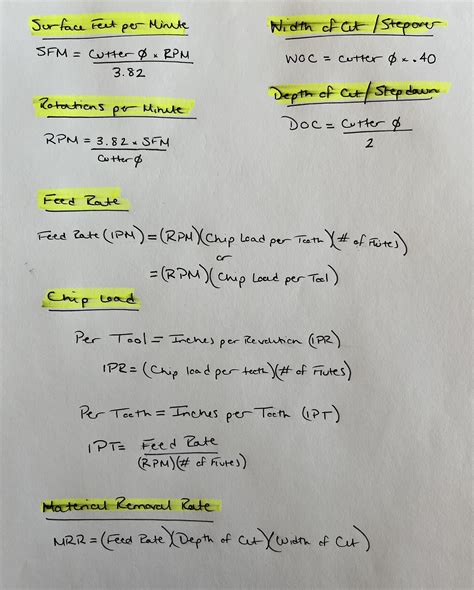 Surface Feet per Minute
SFM = Cutter Ø × RPM
3.82
Rotations per Minute
RPM = 3.82 × SFM
Cutter Ø
Width of Cut / Stepover
WOC = Cutter Ø × .40
Depth of Cut / Stepdown
DOC = Cutter Ø
2
Feed Rate
Feed Rate (IPM) = (RPM)(Chip Load per Tooth)(# of Flutes)
or
= (RPM)(Chip Load per Tool)
Chip Load
Per Tool = Inches per Revolution (IPR)
IPR = (Chip load per teeth)(# of Flutes)
Per Tooth = Inches per Tooth (IPT)
IPT = Feed Rate
(RPM)(# of Flutes)
Material Removal Rate
MRR = (Feed Rate)(Depth of Cut)(Width of Cut)